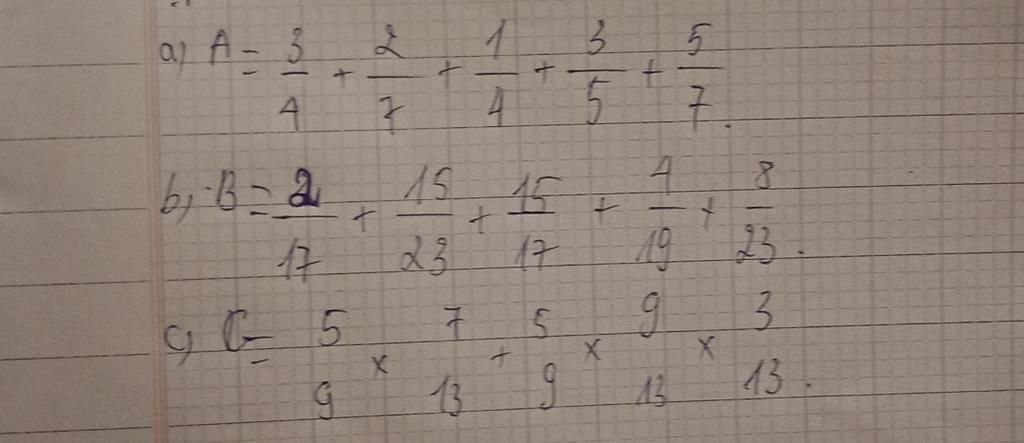 a) A = 3/4 + 2/7 + 1/4 + 3/5 + 5/7.
b, B = 2/17 + 15/23 + 15/17 + 4/19 + 8/23.
c, C = 5/9 x 7/13 + 5/9 x 9/13 x 3/13.